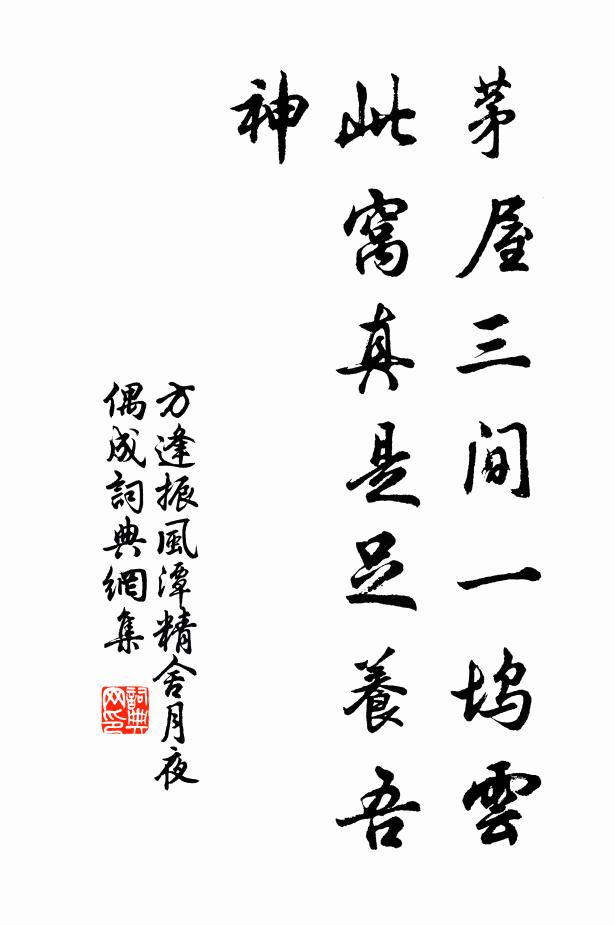 茅屋三间一坞雲
此窩真是足養吾
神
方逢振風潭精舍月夜
偶成詞典網集
詞典
网印